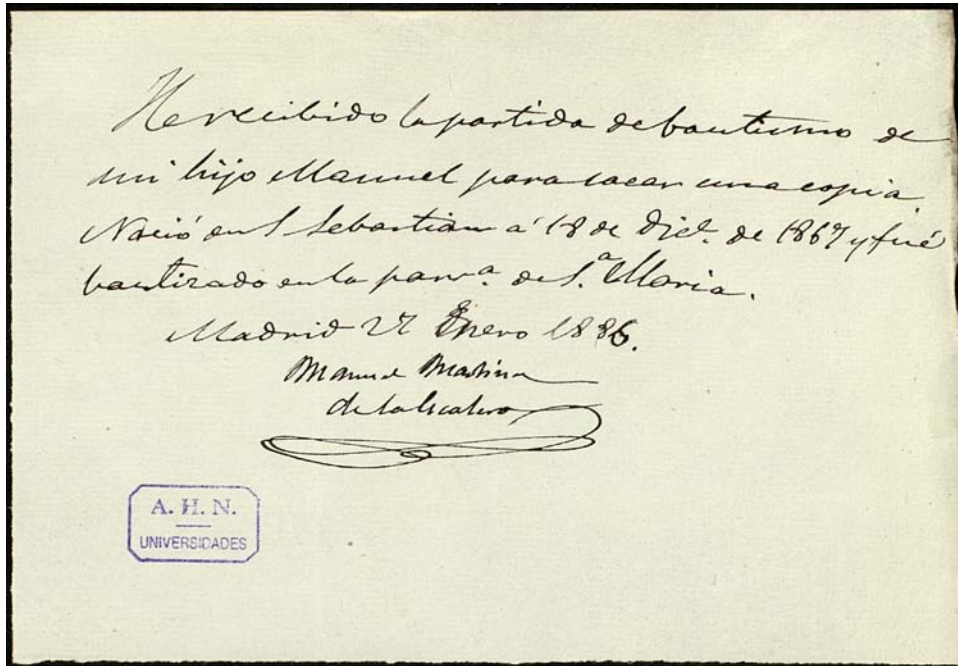 He recibido la partida de bautismo de
mi hijo Manuel para sacar una copia.
Nació en S Sebastian á 18 de Dice. de 1867 y fué
bautizado en la parra. de Sta. Maria.
Madrid 27 Enero 1886.
Manuel Martinez
de la Escalera
A. H. N.
UNIVERSIDADES